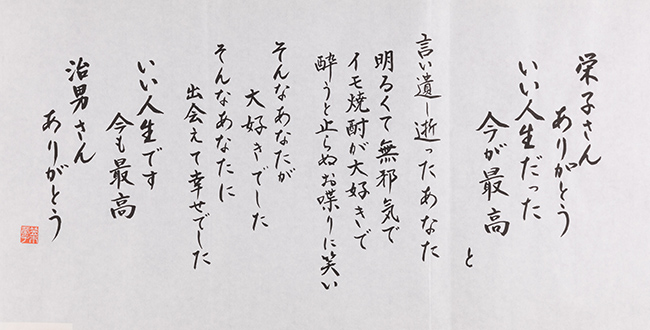 栄子さん
ありがとう
いい人生だった
今が最高
と
言い遺し逝ったあなた
明るくて無邪気で
イモ焼酎が大好きで
酔うと止らぬお喋りに笑い
そんなあなたが
大好きでした
そんなあなたに
出会えて幸せでした
いい人生です
今も最高
治男さん
ありがとう